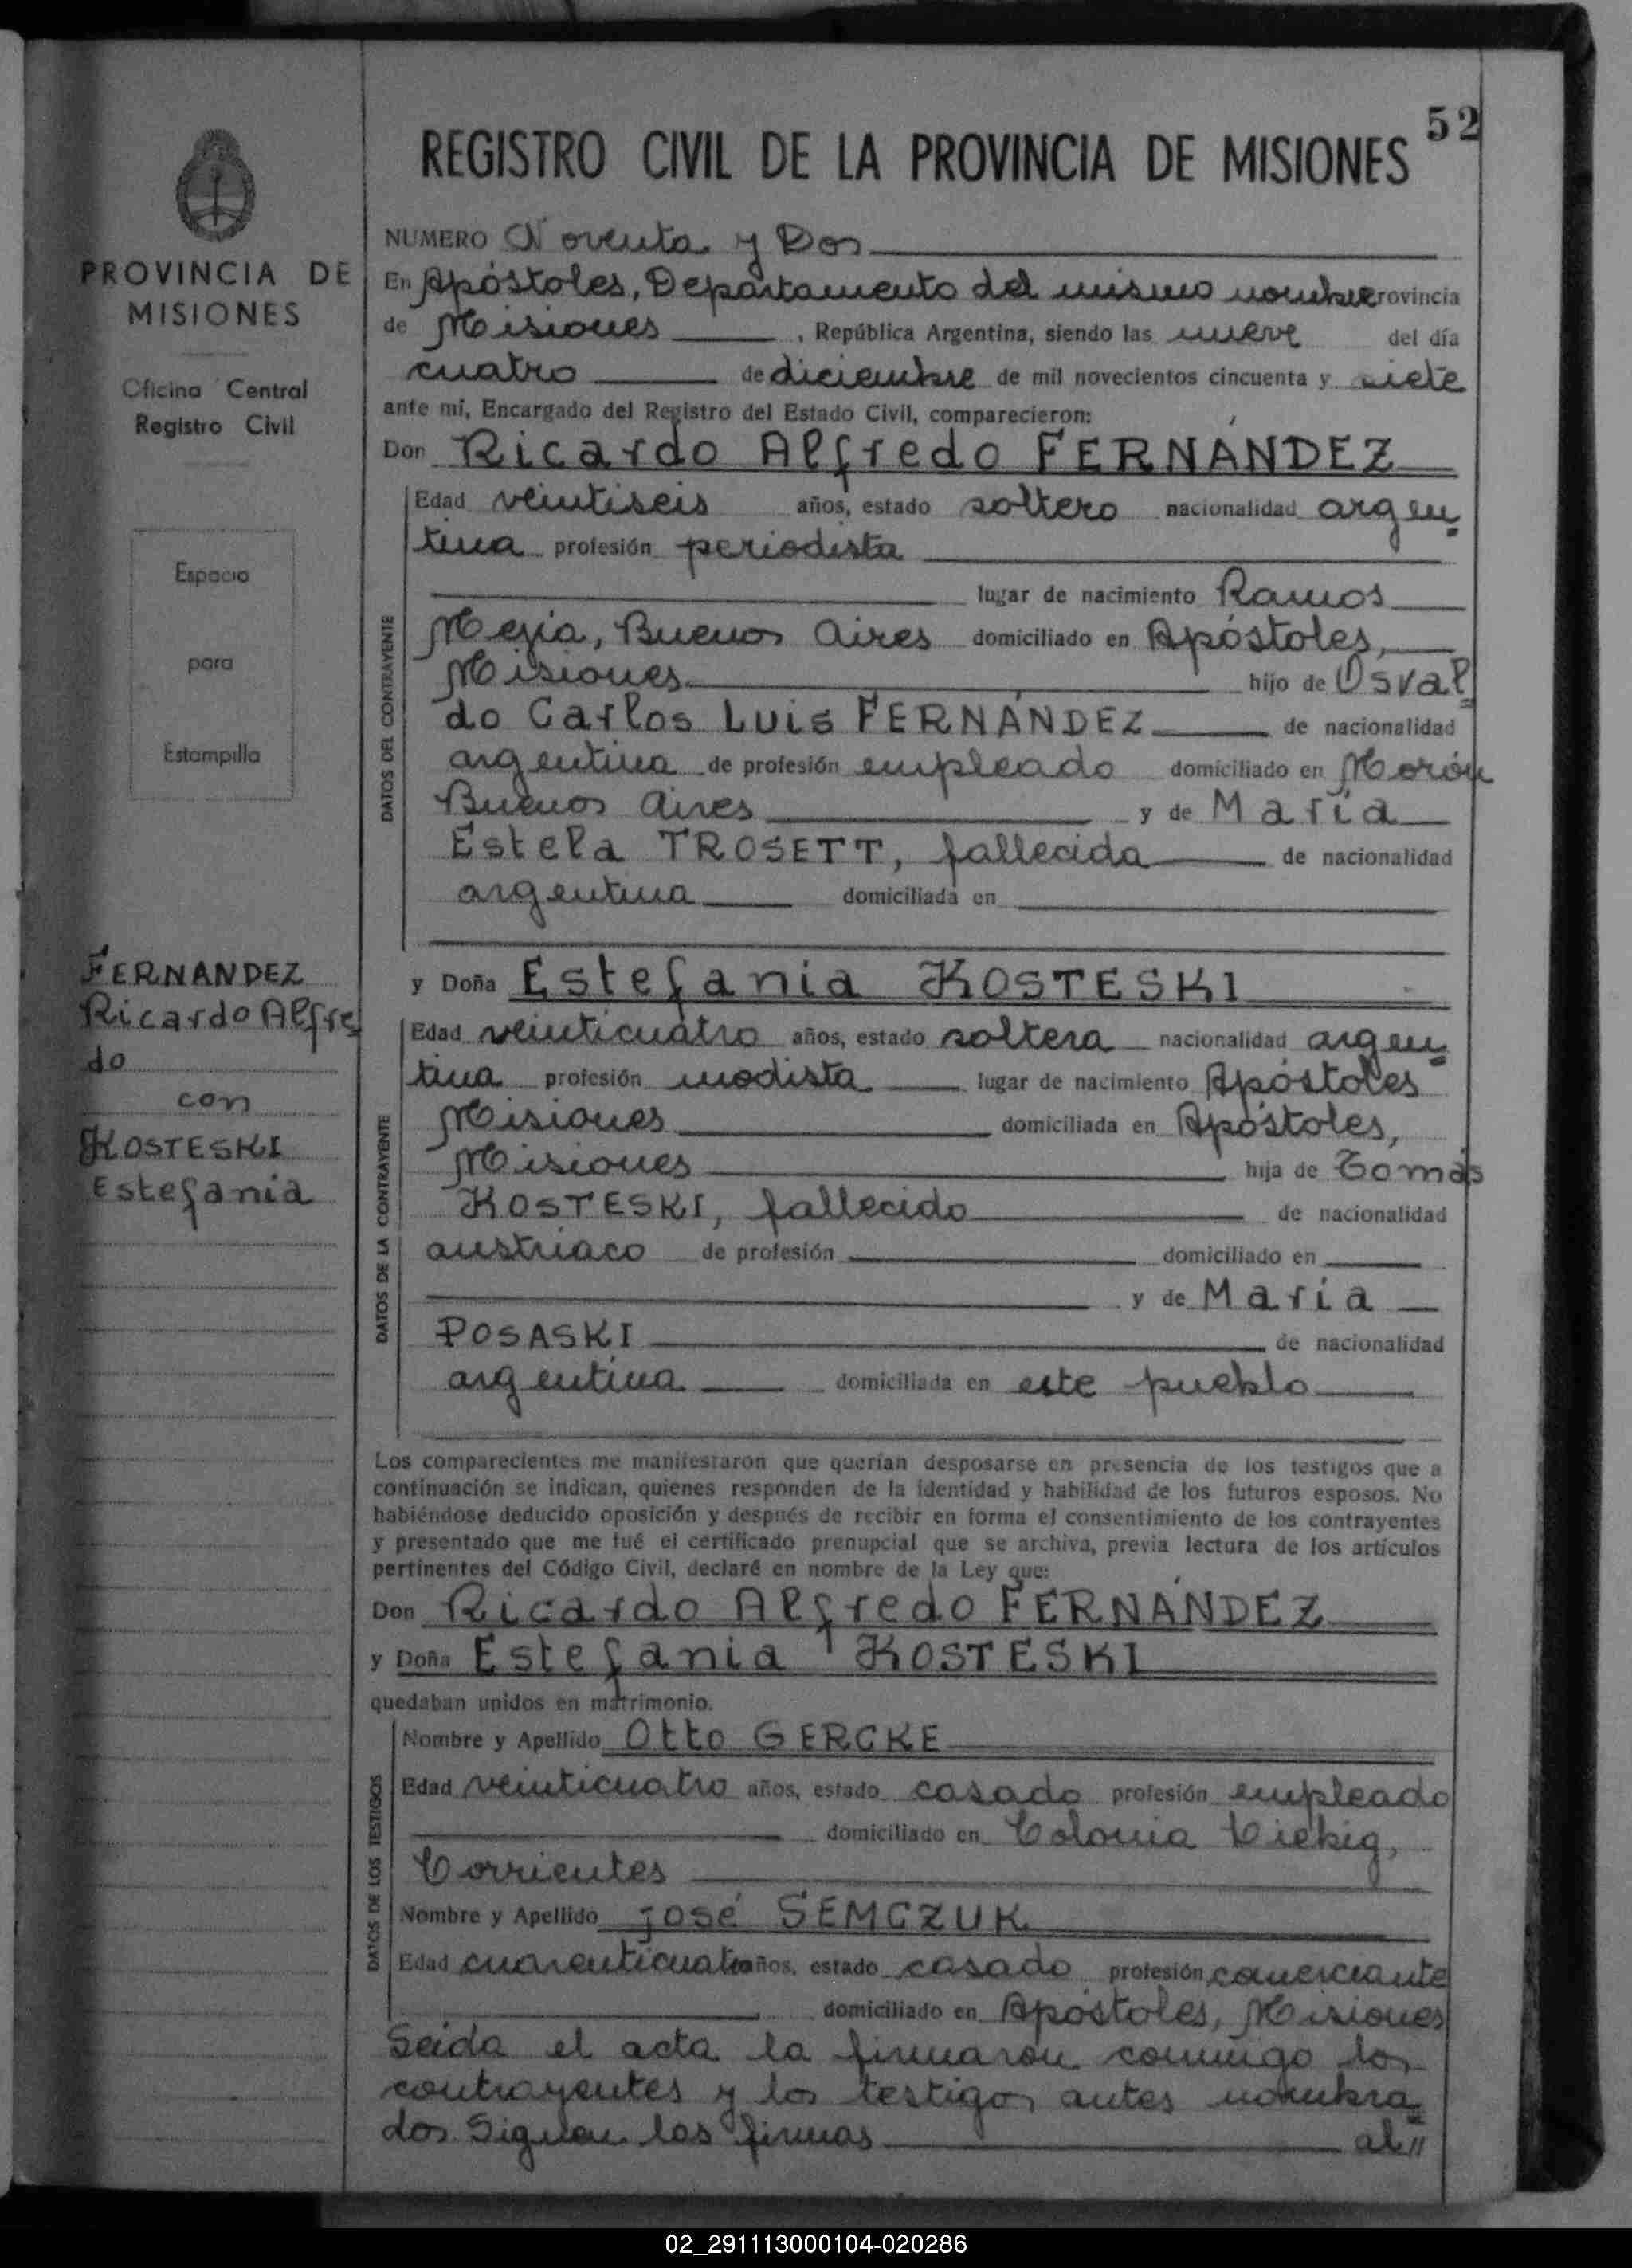 52
REGISTRO CIVIL DE LA PROVINCIA DE MISIONES
PROVINCIA DE
MISIONES
Oficina Central
Registro Civil
Espacio
para
Estampilla
FERNANDEZ
Ricardo Alfre
do
con
KOSTESKI
Estefania
NUMERO Noventa y Dos
En Apóstoles, Departamento del mismo nombre rovincia
de Misiones , República Argentina, siendo las nueve del día
cuatro de diciembre de mil novecientos cincuenta y siete
ante mí, Encargado del Registro del Estado Civil, comparecieron:
Don Ricardo Alfredo FERNÁNDEZ
DATOS DEL CONTRAYENTE
Edad veintiseis años, estado soltero nacionalidad argen
tina profesión periodista
lugar de nacimiento Ramos
Mejia, Buenos Aires domiciliado en Apóstoles,
Misiones hijo de Osval
do Carlos Luis FERNÁNDEZ de nacionalidad
argentina de profesión empleado domiciliado en Morón
Buenos Aires y de María
Estela TROSETT, fallecida de nacionalidad
argentina domiciliada en
y Doña Estefania KOSTESKI
DATOS DE LA CONTRAYENTE
Edad veinticuatro años, estado soltera nacionalidad argen
tina profesión modista lugar de nacimiento Apóstoles
Misiones domiciliada en Apóstoles,
Misiones hija de Tomás
KOSTESKI, fallecido de nacionalidad
austriaco de profesión domiciliado en
y de María
POSASKI de nacionalidad
argentina domiciliada en este pueblo
Los comparecientes me manifestaron que querían desposarse en presencia de los testigos que a
continuación se indican, quienes responden de la identidad y habilidad de los futuros esposos. No
habiéndose deducido oposición y después de recibir en forma el consentimiento de los contrayentes
y presentado que me fué el certificado prenupcial que se archiva, previa lectura de los artículos
pertinentes del Código Civil, declaré en nombre de la Ley que:
Don Ricardo Alfredo FERNÁNDEZ
y Doña Estefania KOSTESKI
quedaban unidos en matrimonio.
DATOS DE LOS TESTIGOS
Nombre y Apellido Otto GERCKE
Edad veinticuatro años, estado casado profesión empleado
domiciliado en Colonia Liebig,
Corrientes
Nombre y Apellido José SEMCZUK
Edad cuarenticuatro años, estado casado profesión comerciante
domiciliado en Apóstoles, Misiones
Leida el acta la firmaron conmigo los
contrayentes y los testigos antes nombra
dos. Siguen las firmas al //
02_291113000104-020286